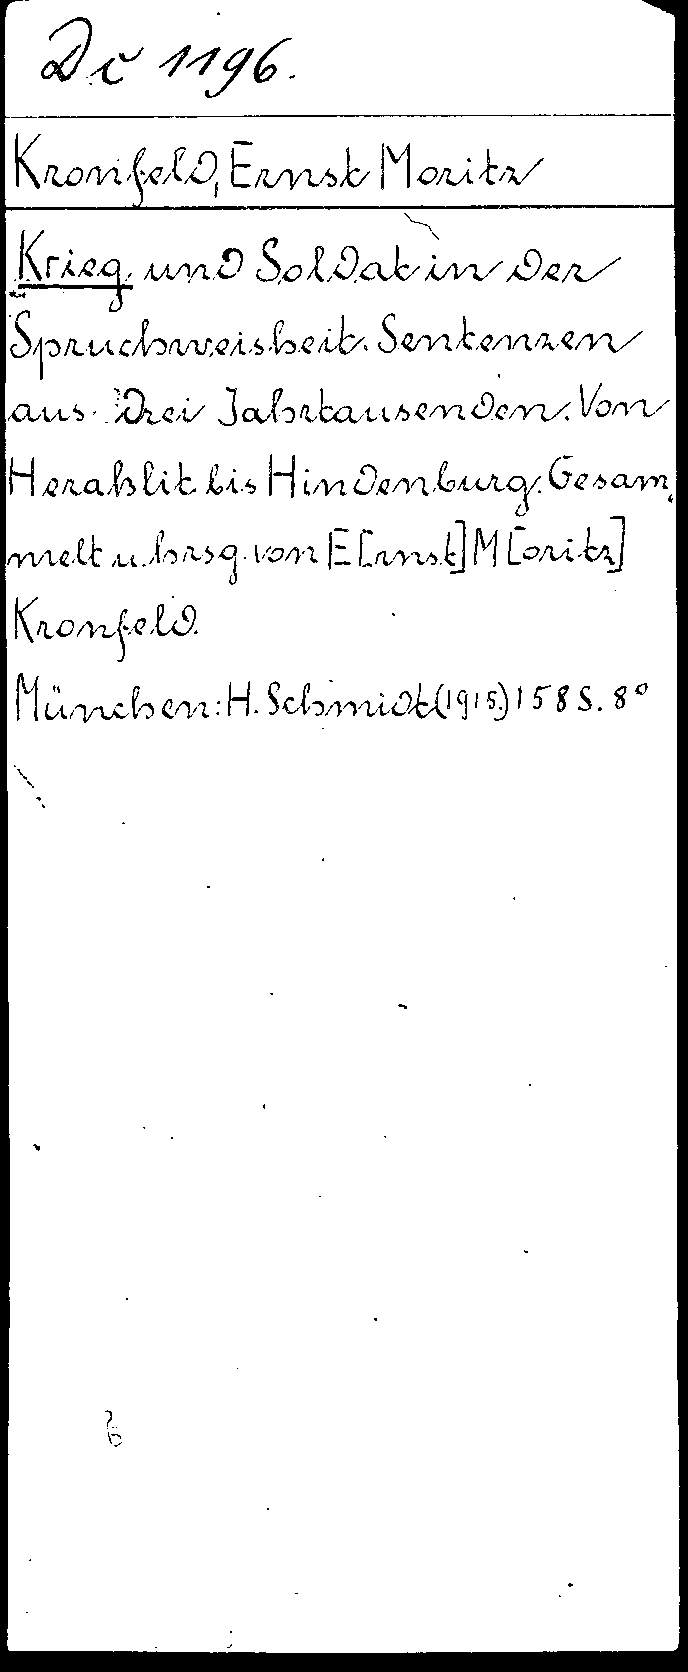 Dč 1196.
Kronfeld, Ernst Moritz
Krieg und Soldat in der
Spruchweisheit. Sentenzen
aus drei Jahrtausenden. Von
Heraklit bis Hindenburg. Gesam,
melt u. hrsg. von E[rnst] M[oritz]
Kronfeld.
München: H. Schmidt (1915.) 158 S. 8°